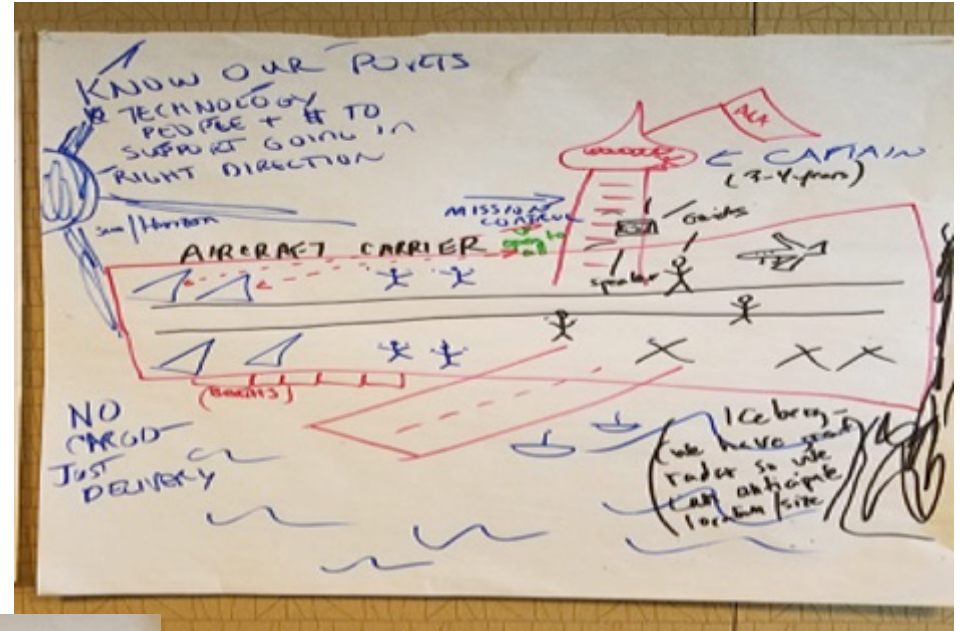 KNOW OUR PORTS
TECHNOLOGY
PEOPLE + # TO
SUPPORT GOING IN
RIGHT DIRECTION
sun/Horizon
ALA
← CAPTAIN
(3-4-years)
MISSION
CONTROL
open to
all
speaker
AIRCRAFT CARRIER
(BOATS)
NO
CARGO-
JUST
DELIVERY
Iceberg-
(we have great
radar so we
can anticipate
location/size)